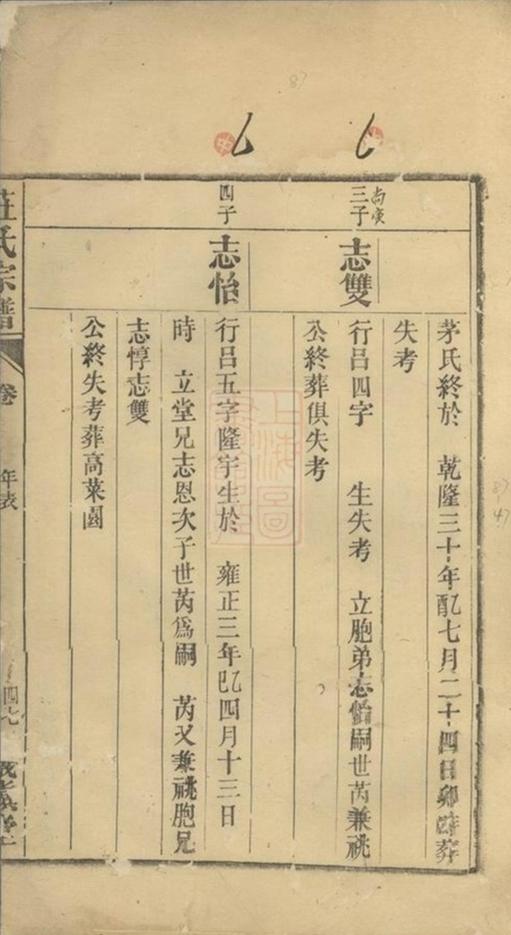 茅氏終於 乾隆三十年配七月二十四日卯時葬
失考
尚賓
三子
志雙
行呂四字 生失考 立胞弟志怡嗣世芮兼祧
公終葬俱失考
四子
志怡
行呂五字隆宇生於 雍正三年乙巳四月十三日
時 立堂兄志恩次子世芮爲嗣 芮又兼祧胞兄
志惇志雙
公終失考葬高菜園
莊氏宗譜
卷
年表
四七